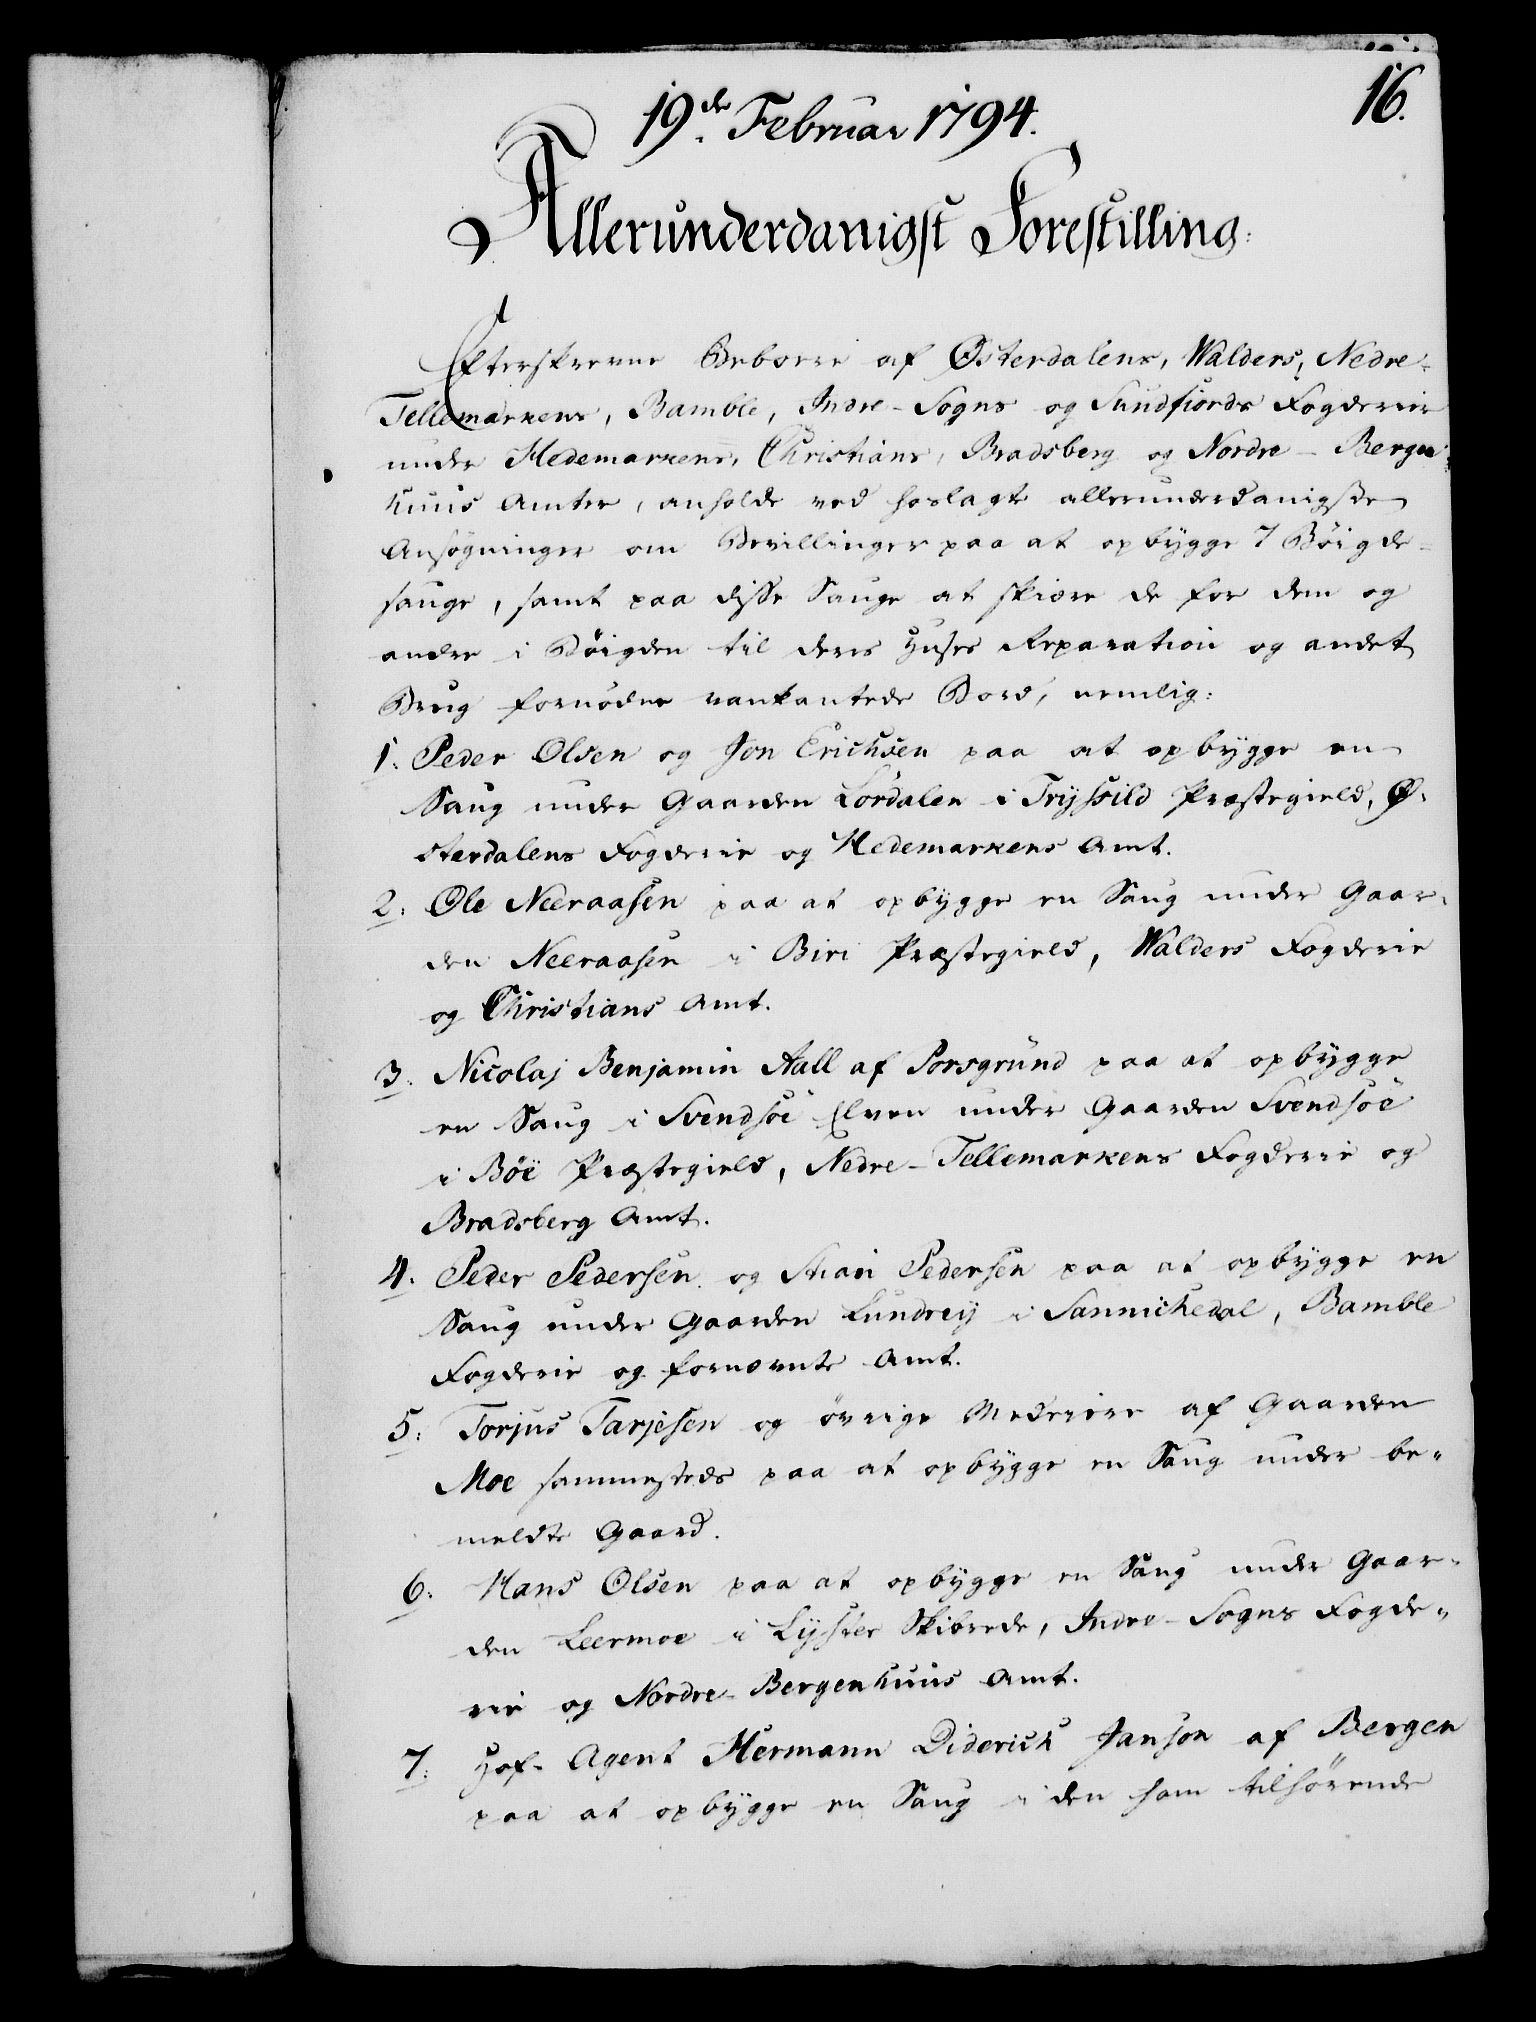 16.
19de Februar 1794.
Allerunderdanigst Forestilling:
Efterskrevne Beboere af Østerdalens, Walders, Nedre-
Tellemarkens, Bamble, Indre-Sogns og Sundfiords Fogderier
under Hedemarkens, Christians, Bradsberg og Nordre-Bergen-
huuis Amter, anholde ved hoslagte allerunderdanigste
Ansøgninger om Bevillinger paa at opbygge 7 Bøigde-
sauge, samt paa disse Sauge at skiære de for dem og
andre i Bøigden til deres Huses Reparation og andet
Brug fornødne vankantede Bord, nemlig:
1. Peder Olsen og Jon Erichsen paa at opbygge en
Saug under Gaarden Lørdalen i Tryssild Præstegield, Ø-
sterdalens Fogderie og Hedemarkens Amt.
2. Ole Neeraasen paa at opbygge en Saug under Gaar-
den Neeraasen i Biri Præstegield, Walders Fogderie
og Christians Amt.
3. Nicolaj Benjamin Aall af Porsgrund paa at opbygge
en Saug i Svendsøe Elven under Gaarden Svendsøe
i Bøe Præstegield, Nedre-Tellemarkens Fogderie og
Bradsberg Amt.
4. Peder Pedersen og Stian Pedersen paa at opbygge en
Saug under Gaarden Lundrej i Sannichedal, Bamble
Fogderie og fornævnte Amt.
5. Torjus Tarjesen og øvrige Medeiere af Gaarden
Moe sammesteds paa at opbygge en Saug under be-
meldte Gaard.
6. Hans Olsen paa at opbygge en Saug under Gaar-
den Leermoe i Lyster Skibrede, Indre-Sogns Fogde-
rie og Nordre-Bergenhuuis Amt.
7. Hof-Agent Hermann Diderich Janson af Bergen
paa at opbygge en Saug i den ham tilhørende